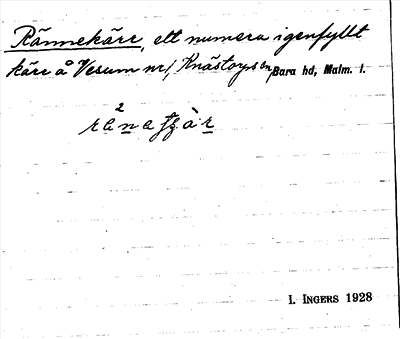 Rännekärr, ett numera igenfyllt
kärr å Vesum nr 1, Knästorps sn, Bara hd, Malm. l.
I. INGERS 1928